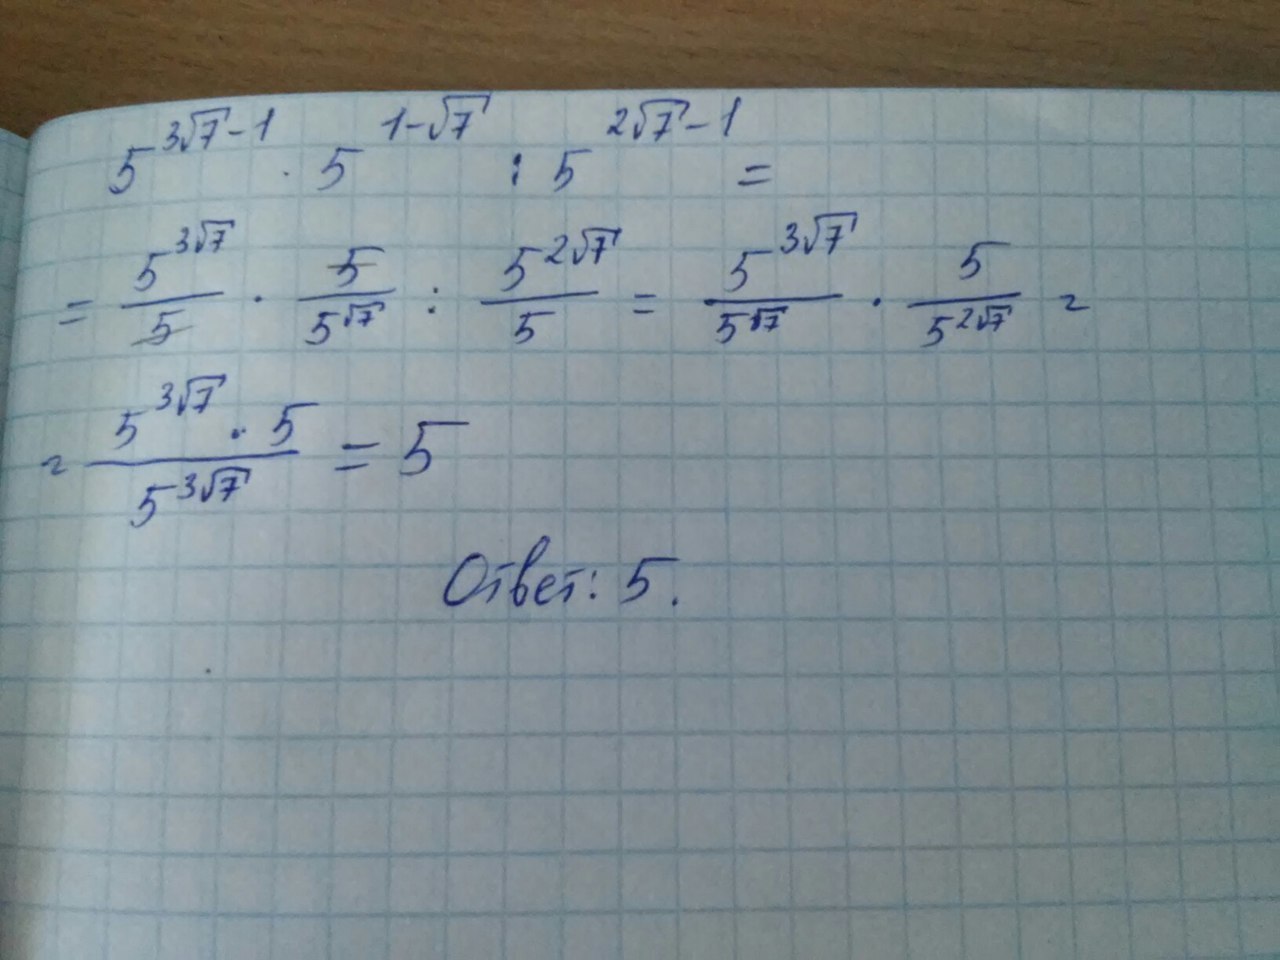 5^(3√7-1) · 5^(1-√7) : 5^(2√7-1) =
= 5^(3√7)/5 · 5/5^(√7) : 5^(2√7)/5 = 5^(3√7)/5^(√7) · 5/5^(2√7) =
= (5^(3√7) · 5)/5^(3√7) = 5
Ответ: 5.